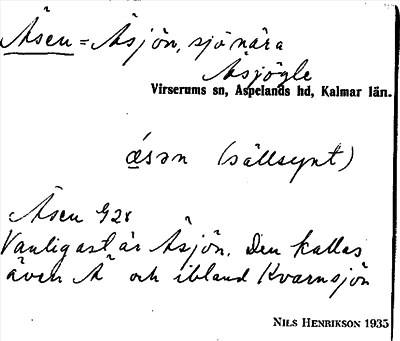 Åsen = Åsjön, sjö nära
Åsjögle
Virserums sn, Aspelands hd, Kalmar län.
ǻsən (sällsynt)
Åsen G28
Vanligast är Åsjön. Den kallas
även Å och ibland Kvarnsjön
NILS HENRIKSON 1935